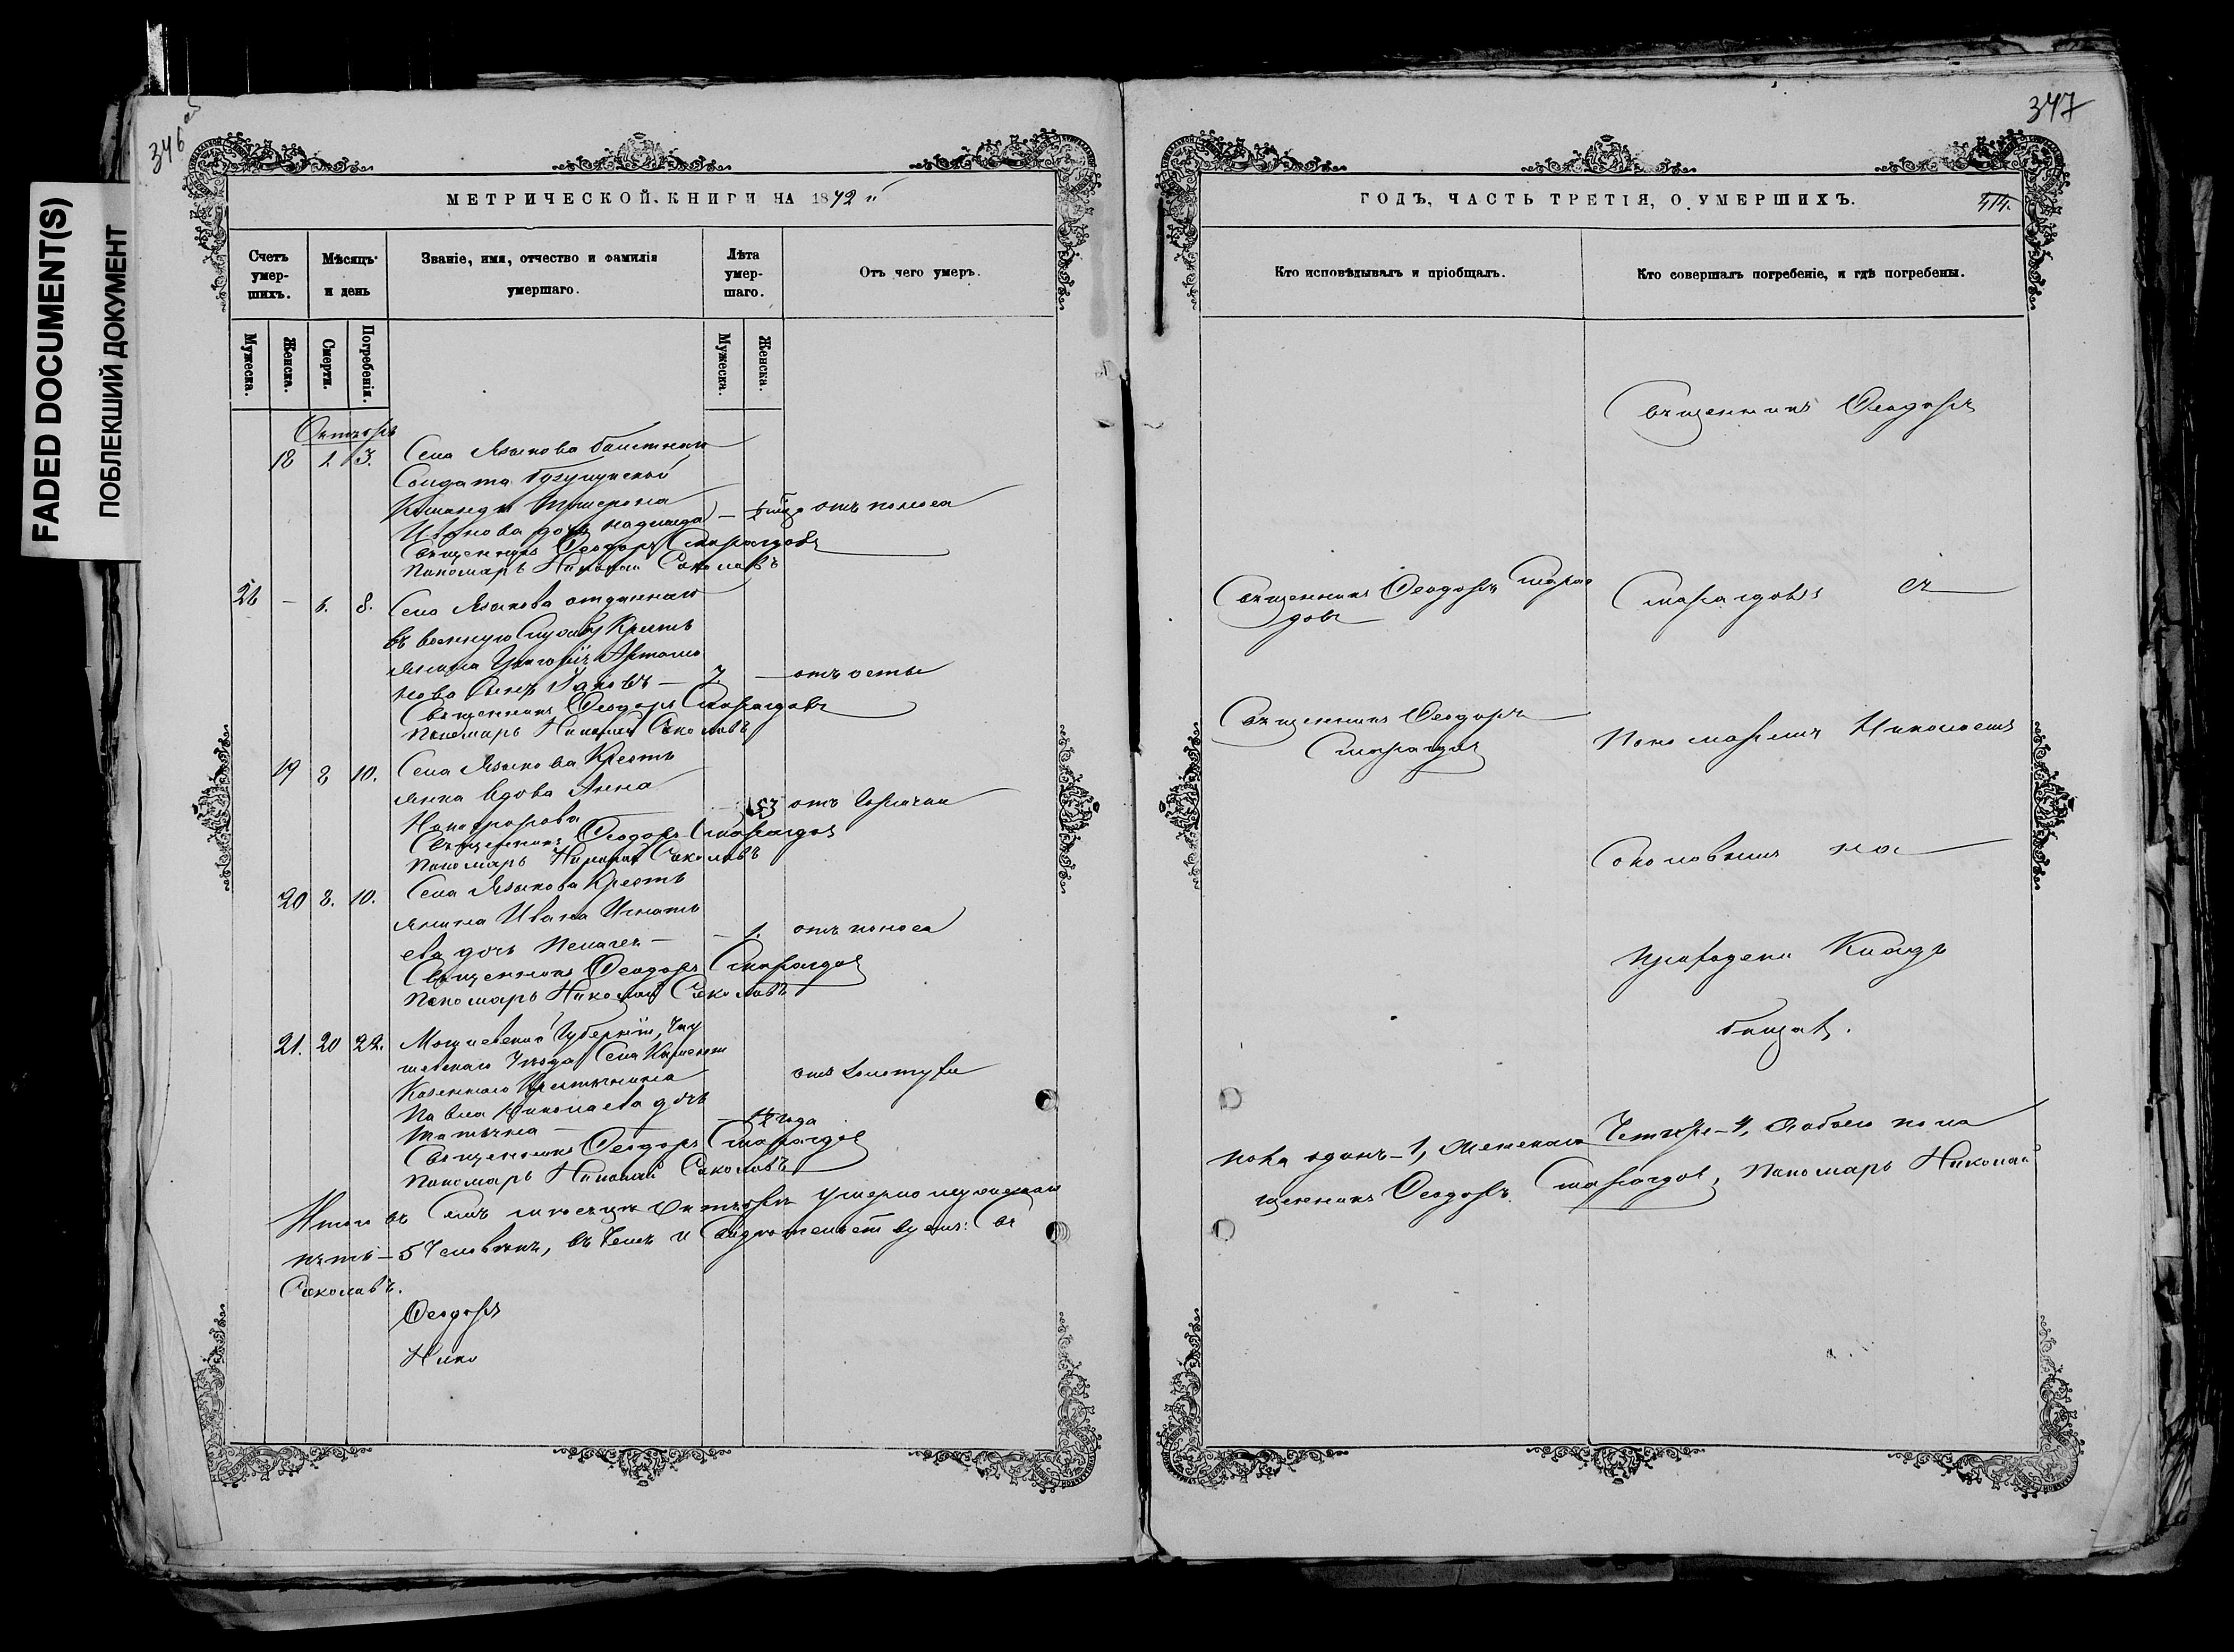 FADED DOCUMENT(S)
ПОБЛЕКШИЙ ДОКУМЕНТ
346 об
МЕТРИЧЕСКОЙ КНИГИ НА 1872 й
Счетъ умер-шихъ.
Мѣсяцъ и день
Званіе, имя, отчество и фамилія умершаго.
Лѣта умер-шаго.
Отъ чего умеръ.
Мужеска.
Женска.
Смерти.
Погребенія.
Мужеска.
Женска.
Октябрь
18 1. 3. Села Языкова
Солдата
Команды
Иванова дочь Надежда — отъ поноса
Священникъ Феодоръ Смарагдовъ
Пономарь Николай Соколовъ
26 — 6. 8. Села Языкова отданнаго
въ военную службу Кресть
янина Григорія Артамо
нова сынъ Яковъ — 7. — отъ оспы
Священникъ Феодоръ Смарагдовъ
Пономарь Николай Соколовъ
19 8 10. Села Языкова Кресть
янка вдова Анна
Никифорова 53 отъ горячки
Священникъ Феодоръ Смарагдовъ
Пономарь Николай Соколовъ
20 8. 10. Села Языкова Кресть
янина Ивана Игнать
ева дочь Пелагея — — 1. отъ поноса
Священникъ Феодоръ Смарагдовъ
Пономарь Николай Соколовъ
21. 20 22. Могилевской Губерніи, Чау
шевскаго Уѣзда Села
Казеннаго Крестьянина
Павла Николаева дочь отъ золотухи
Татьяна — года
Священникъ Феодоръ Смарагдовъ
Пономарь Николай Соколовъ
Итого въ семъ мѣсяцѣ Октябрѣ умерло мужескаго
пять — 5 человѣкъ, въ чемъ и свидѣтельствуемъ: Св
Соколовъ.
Феодоръ
Нико
347
ГОДЪ, ЧАСТЬ ТРЕТІЯ, О УМЕРШИХЪ.
Кто исповѣдывалъ и пріобщалъ.
Кто совершалъ погребеніе, и гдѣ погребены.
Священникъ Феодоръ
Священникъ Феодоръ Смараг
довъ
Смарагдовъ съ
Священникъ Феодоръ
Смарагдовъ
Пономаремъ Николаемъ
Соколовымъ на
приходскомъ Клад
бищѣ.
пола одинъ — 1, женскаго четыре — 4, обоего пола
щенникъ Феодоръ Смарагдовъ, Пономарь Николай